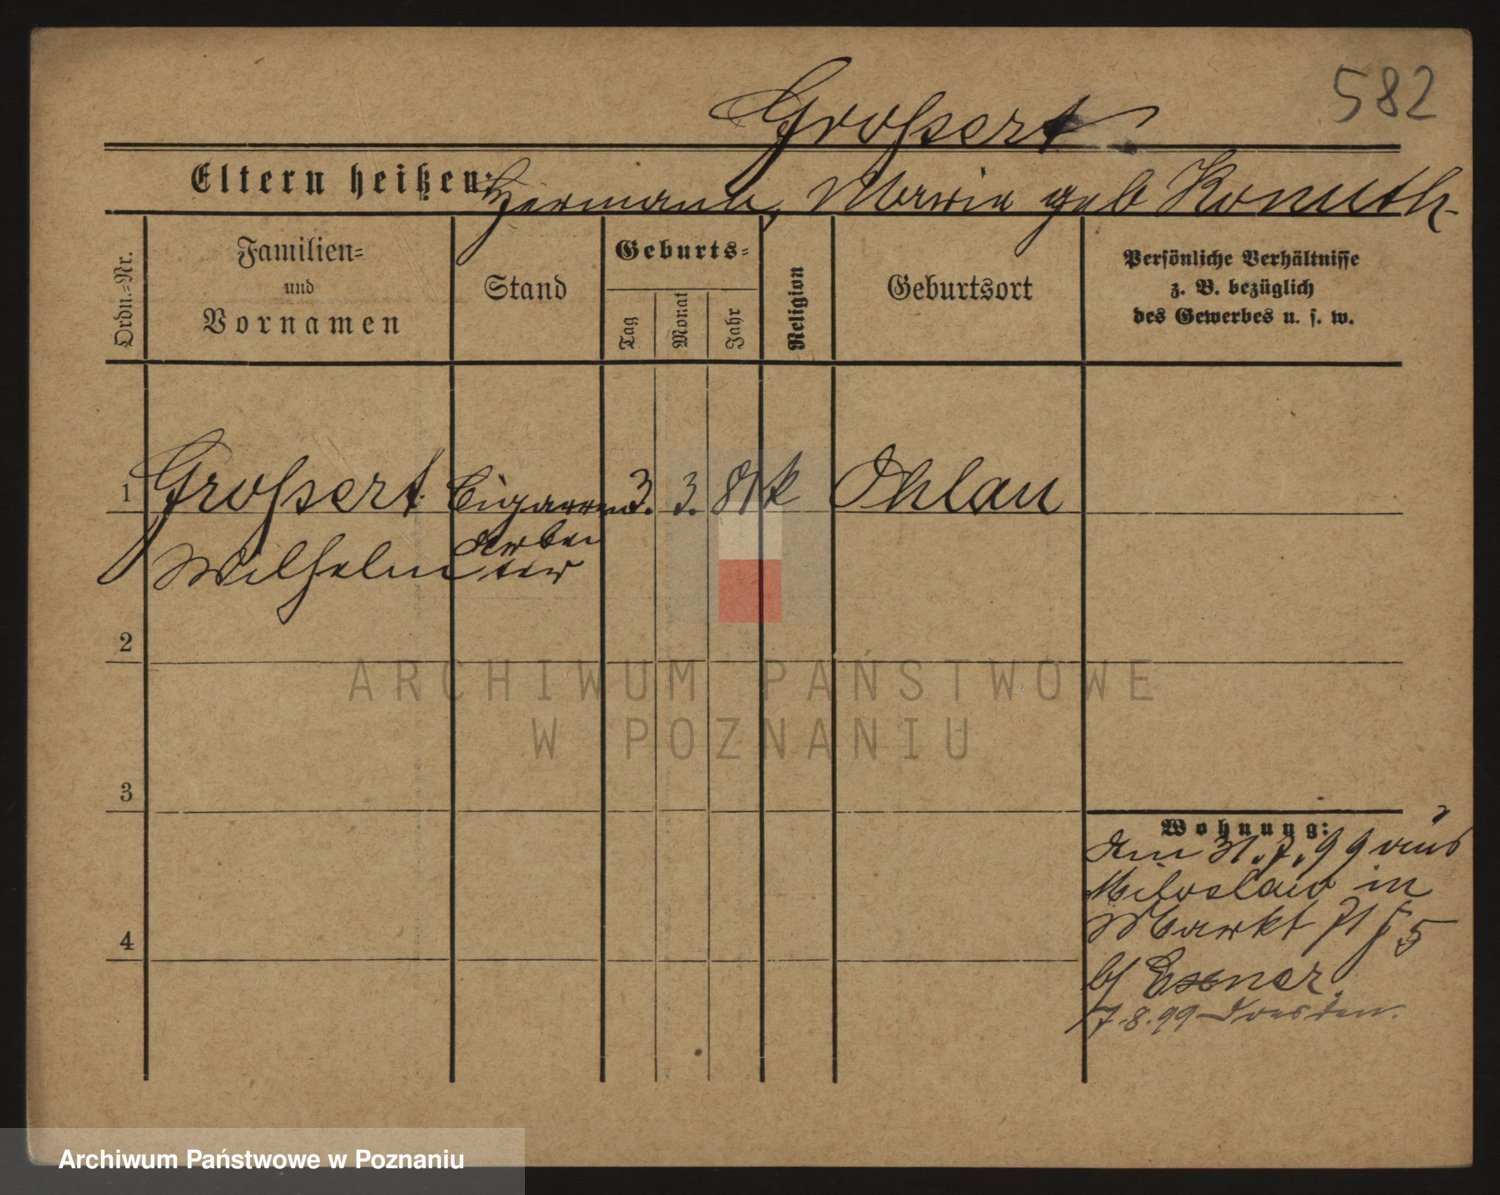 582
Großert
Eltern heißen: Hermann, Maria geb Konuth
Ordn.-Nr.
Familien-
und
Vornamen
Stand
Geburts-
Tag
Monat
Jahr
Religion
Geburtsort
Persönliche Verhältnisse
z. B. bezüglich
des Gewerbes u. s. w.
1 Großert Cigarren 3. 3. 81 k Ohlau
Wilhelm Arbei
ter
2
3
4
Wohnung:
Am 31.7.99 aus
Miloslaw in
Markt
Exner
7.8.99 Dresden.
ARCHIWUM PAŃSTWOWE
W POZNANIU
Archiwum Państwowe w Poznaniu